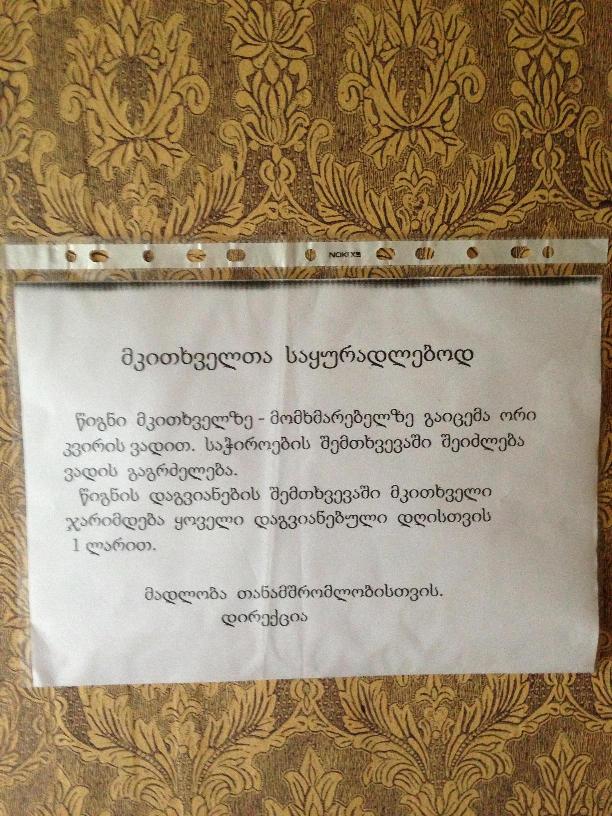 NOKI X5
მკითხველთა საყურადლებოდ
წიგნი მკითხველზე - მომხმარებელზე გაიცემა ორი
კვირის ვადით. საჭიროების შემთხვევაში შეიძლება
ვადის გაგრძელება.
წიგნის დაგვიანების შემთხვევაში მკითხველი
ჯარიმდება ყოველი დაგვიანებული დღისთვის
1 ლარით.
მადლობა თანამშრომლობისთვის.
დირექცია